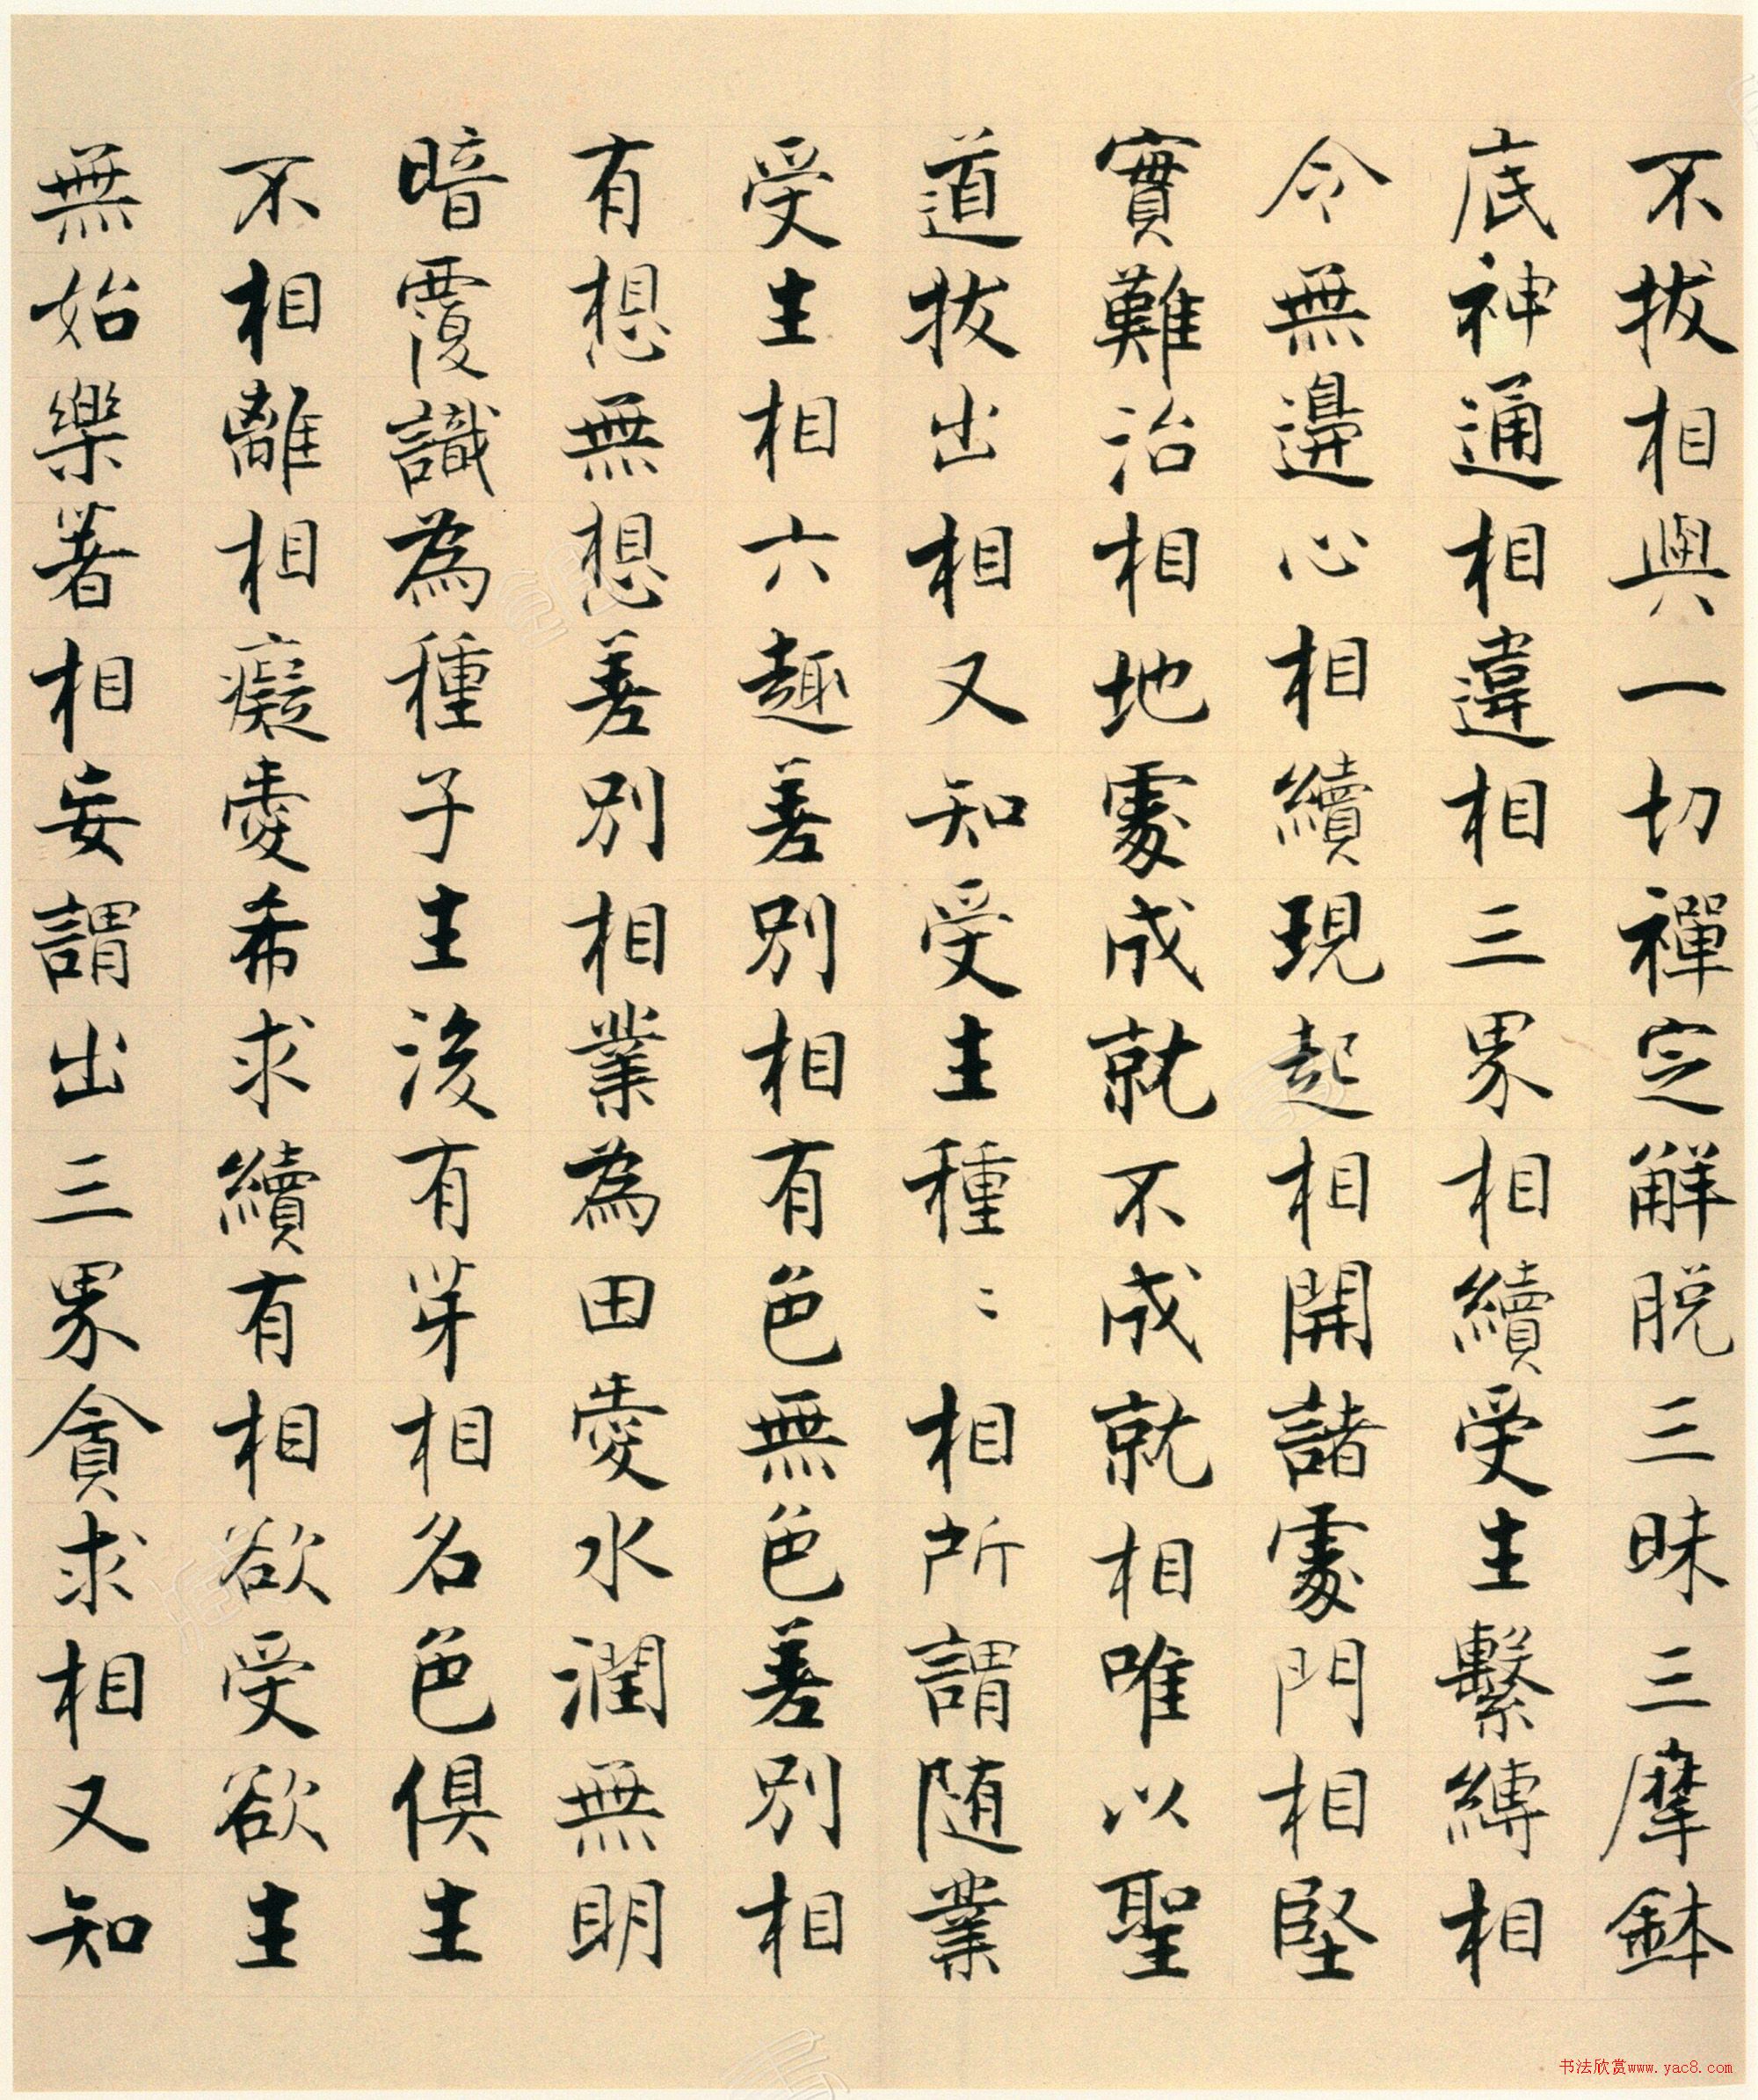 不拔相與一切禪定解脱三昧三摩鉢
底神通相違相三界相續受生繫縛相
令無邊心相續現起相開諸處門相堅
實難治相地處成就不成就相唯以聖
道拔出相又知受生種〻相所謂随業
受生相六趣差別相有色無色差別相
有想無想差別相業為田愛水潤無明
暗覆識為種子生後有芽相名色俱生
不相離相癡愛希求續有相欲受欲生
無始樂著相妄謂出三界貪求相又知
书法欣赏www.yac8.com